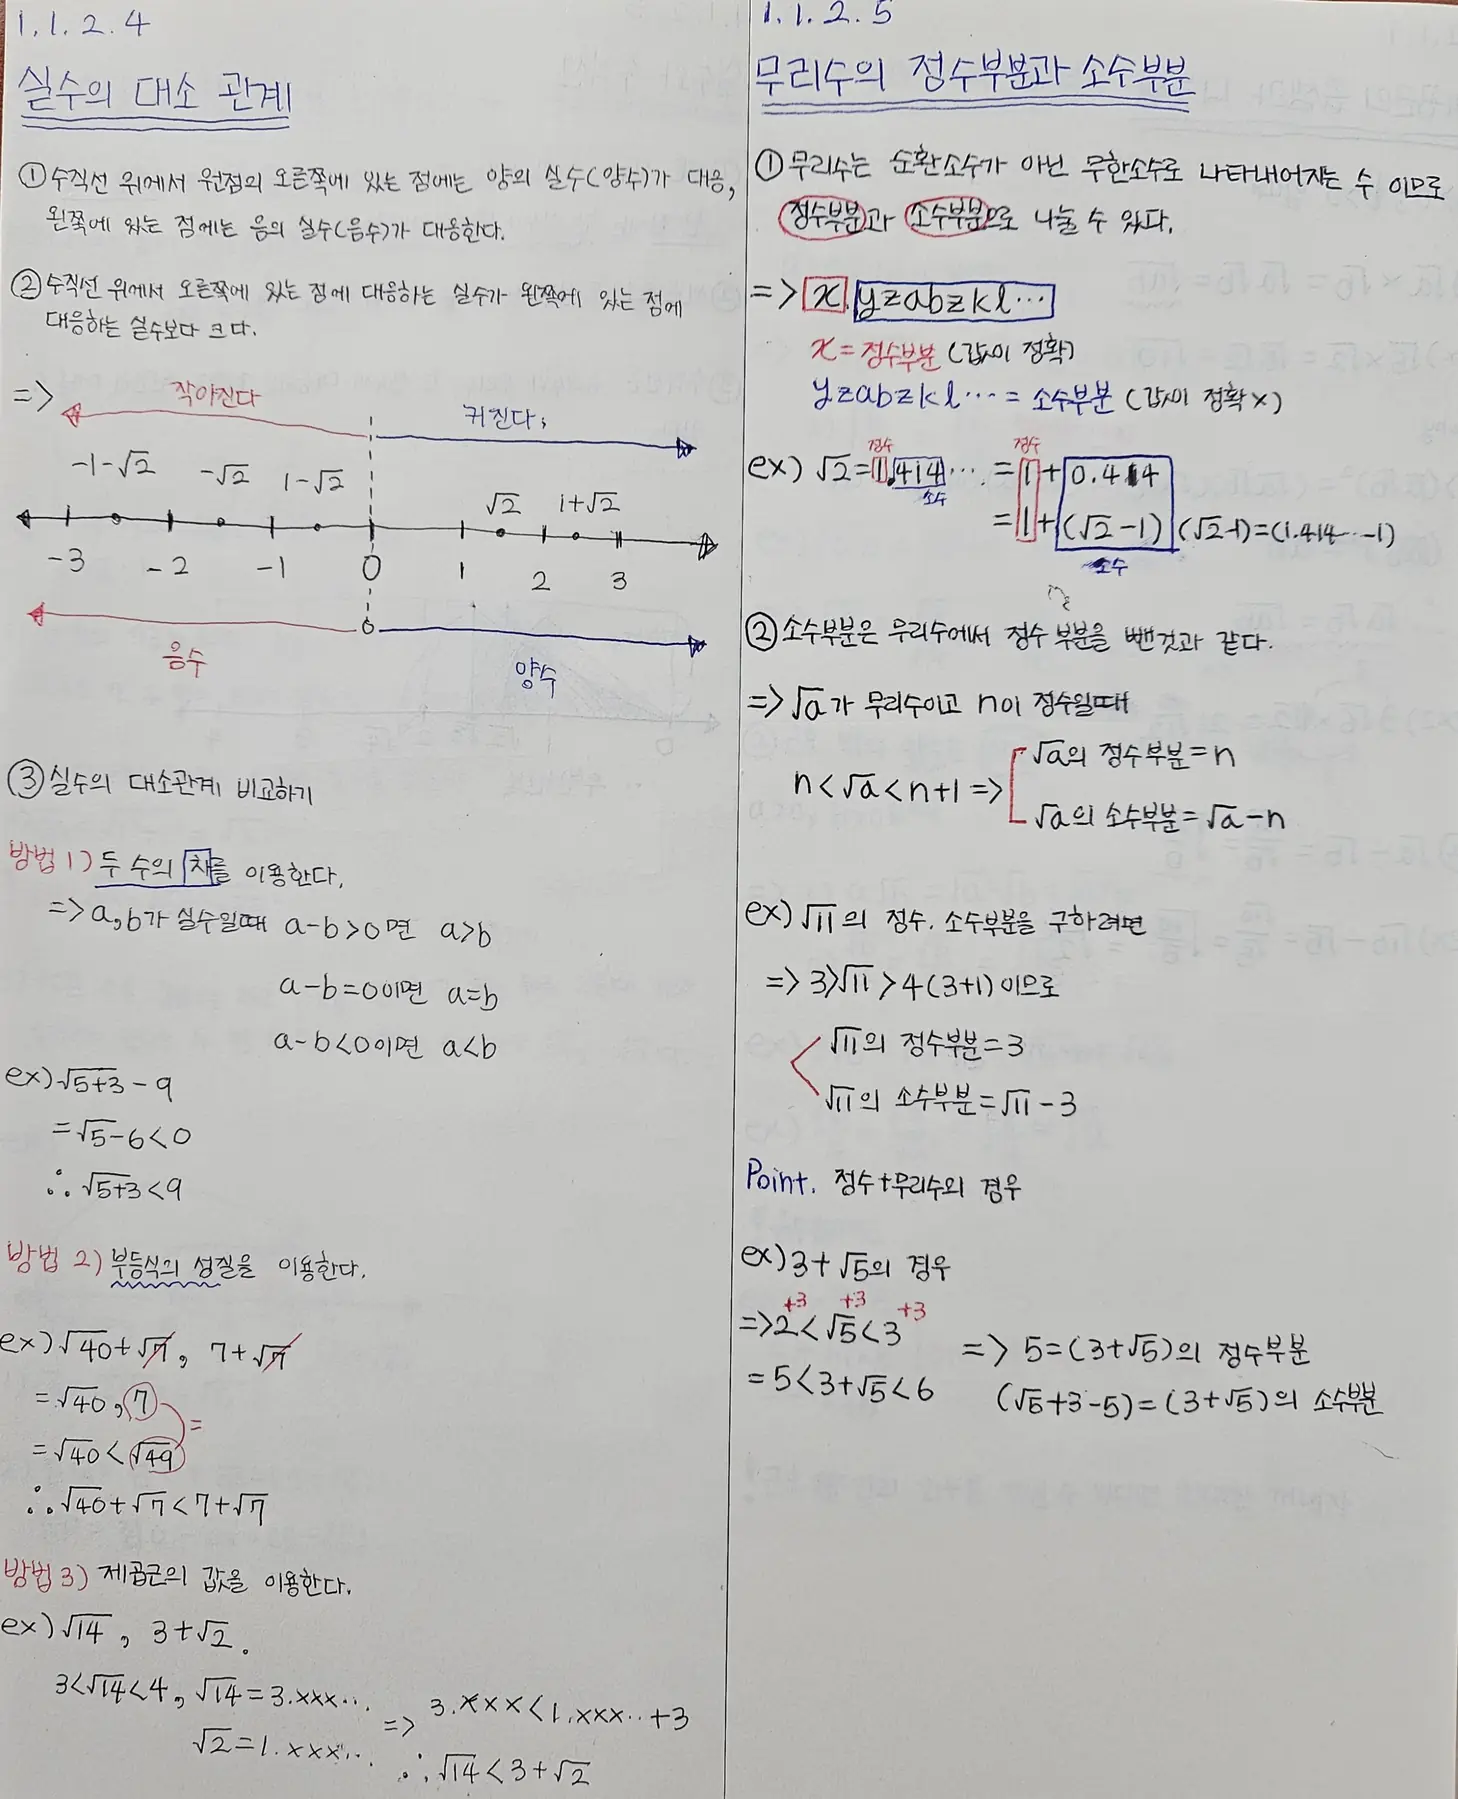 1.1.2.4
실수의 대소 관계
① 수직선 위에서 원점의 오른쪽에 있는 점에는 양의 실수(양수)가 대응,
왼쪽에 있는 점에는 음의 실수(음수)가 대응한다.
② 수직선 위에서 오른쪽에 있는 점에 대응하는 실수가 왼쪽에 있는 점에
대응하는 실수보다 크다.
=> 작아진다 커진다;
-1-√2 -√2 1-√2 √2 1+√2
-3 -2 -1 0 1 2 3
음수 양수
③ 실수의 대소관계 비교하기
방법 1) 두 수의 차를 이용한다.
=> a, b가 실수일때 a-b>0면 a>b
a-b=0이면 a=b
a-b<0이면 a<b
ex) √5+3 - 9
= √5-6<0
∴ √5+3<9
방법 2) 부등식의 성질을 이용한다.
ex) √40+√7, 7+√7
= √40, 7
= √40 < √49 =
∴ √40+√7<7+√7
방법 3) 제곱근의 값을 이용한다.
ex) √14, 3+√2.
3<√14<4, √14=3.xxx...
√2=1.xxx...
=> 3.xxx<1.xxx..+3
∴ √14<3+√2
1.1.2.5
무리수의 정수부분과 소수부분
① 무리수는 순환소수가 아닌 무한소수로 나타내어지는 수 이므로
정수부분과 소수부분으로 나눌 수 있다.
=> x.yzabzkl...
x=정수부분 (값이 정확)
yzabzkl... = 소수부분 (값이 정확x)
정수 정수
ex) √2=1.414... = 1+0.414
소수
= 1+(√2-1) (√2-1)=(1.414...-1)
소수
② 소수부분은 무리수에서 정수 부분을 뺀것과 같다.
=> √a가 무리수이고 n이 정수일때
n<√a<n+1 => √a의 정수부분=n
√a의 소수부분=√a-n
ex) √11의 정수. 소수부분을 구하려면
=> 3>√11>4(3+1)이므로
√11의 정수부분=3
√11의 소수부분=√11-3
Point. 정수+무리수의 경우
ex) 3+√5의 경우
+3 +3 +3
=> 2<√5<3
= 5<3+√5<6
=> 5=(3+√5)의 정수부분
(√5+3-5)=(3+√5)의 소수부분